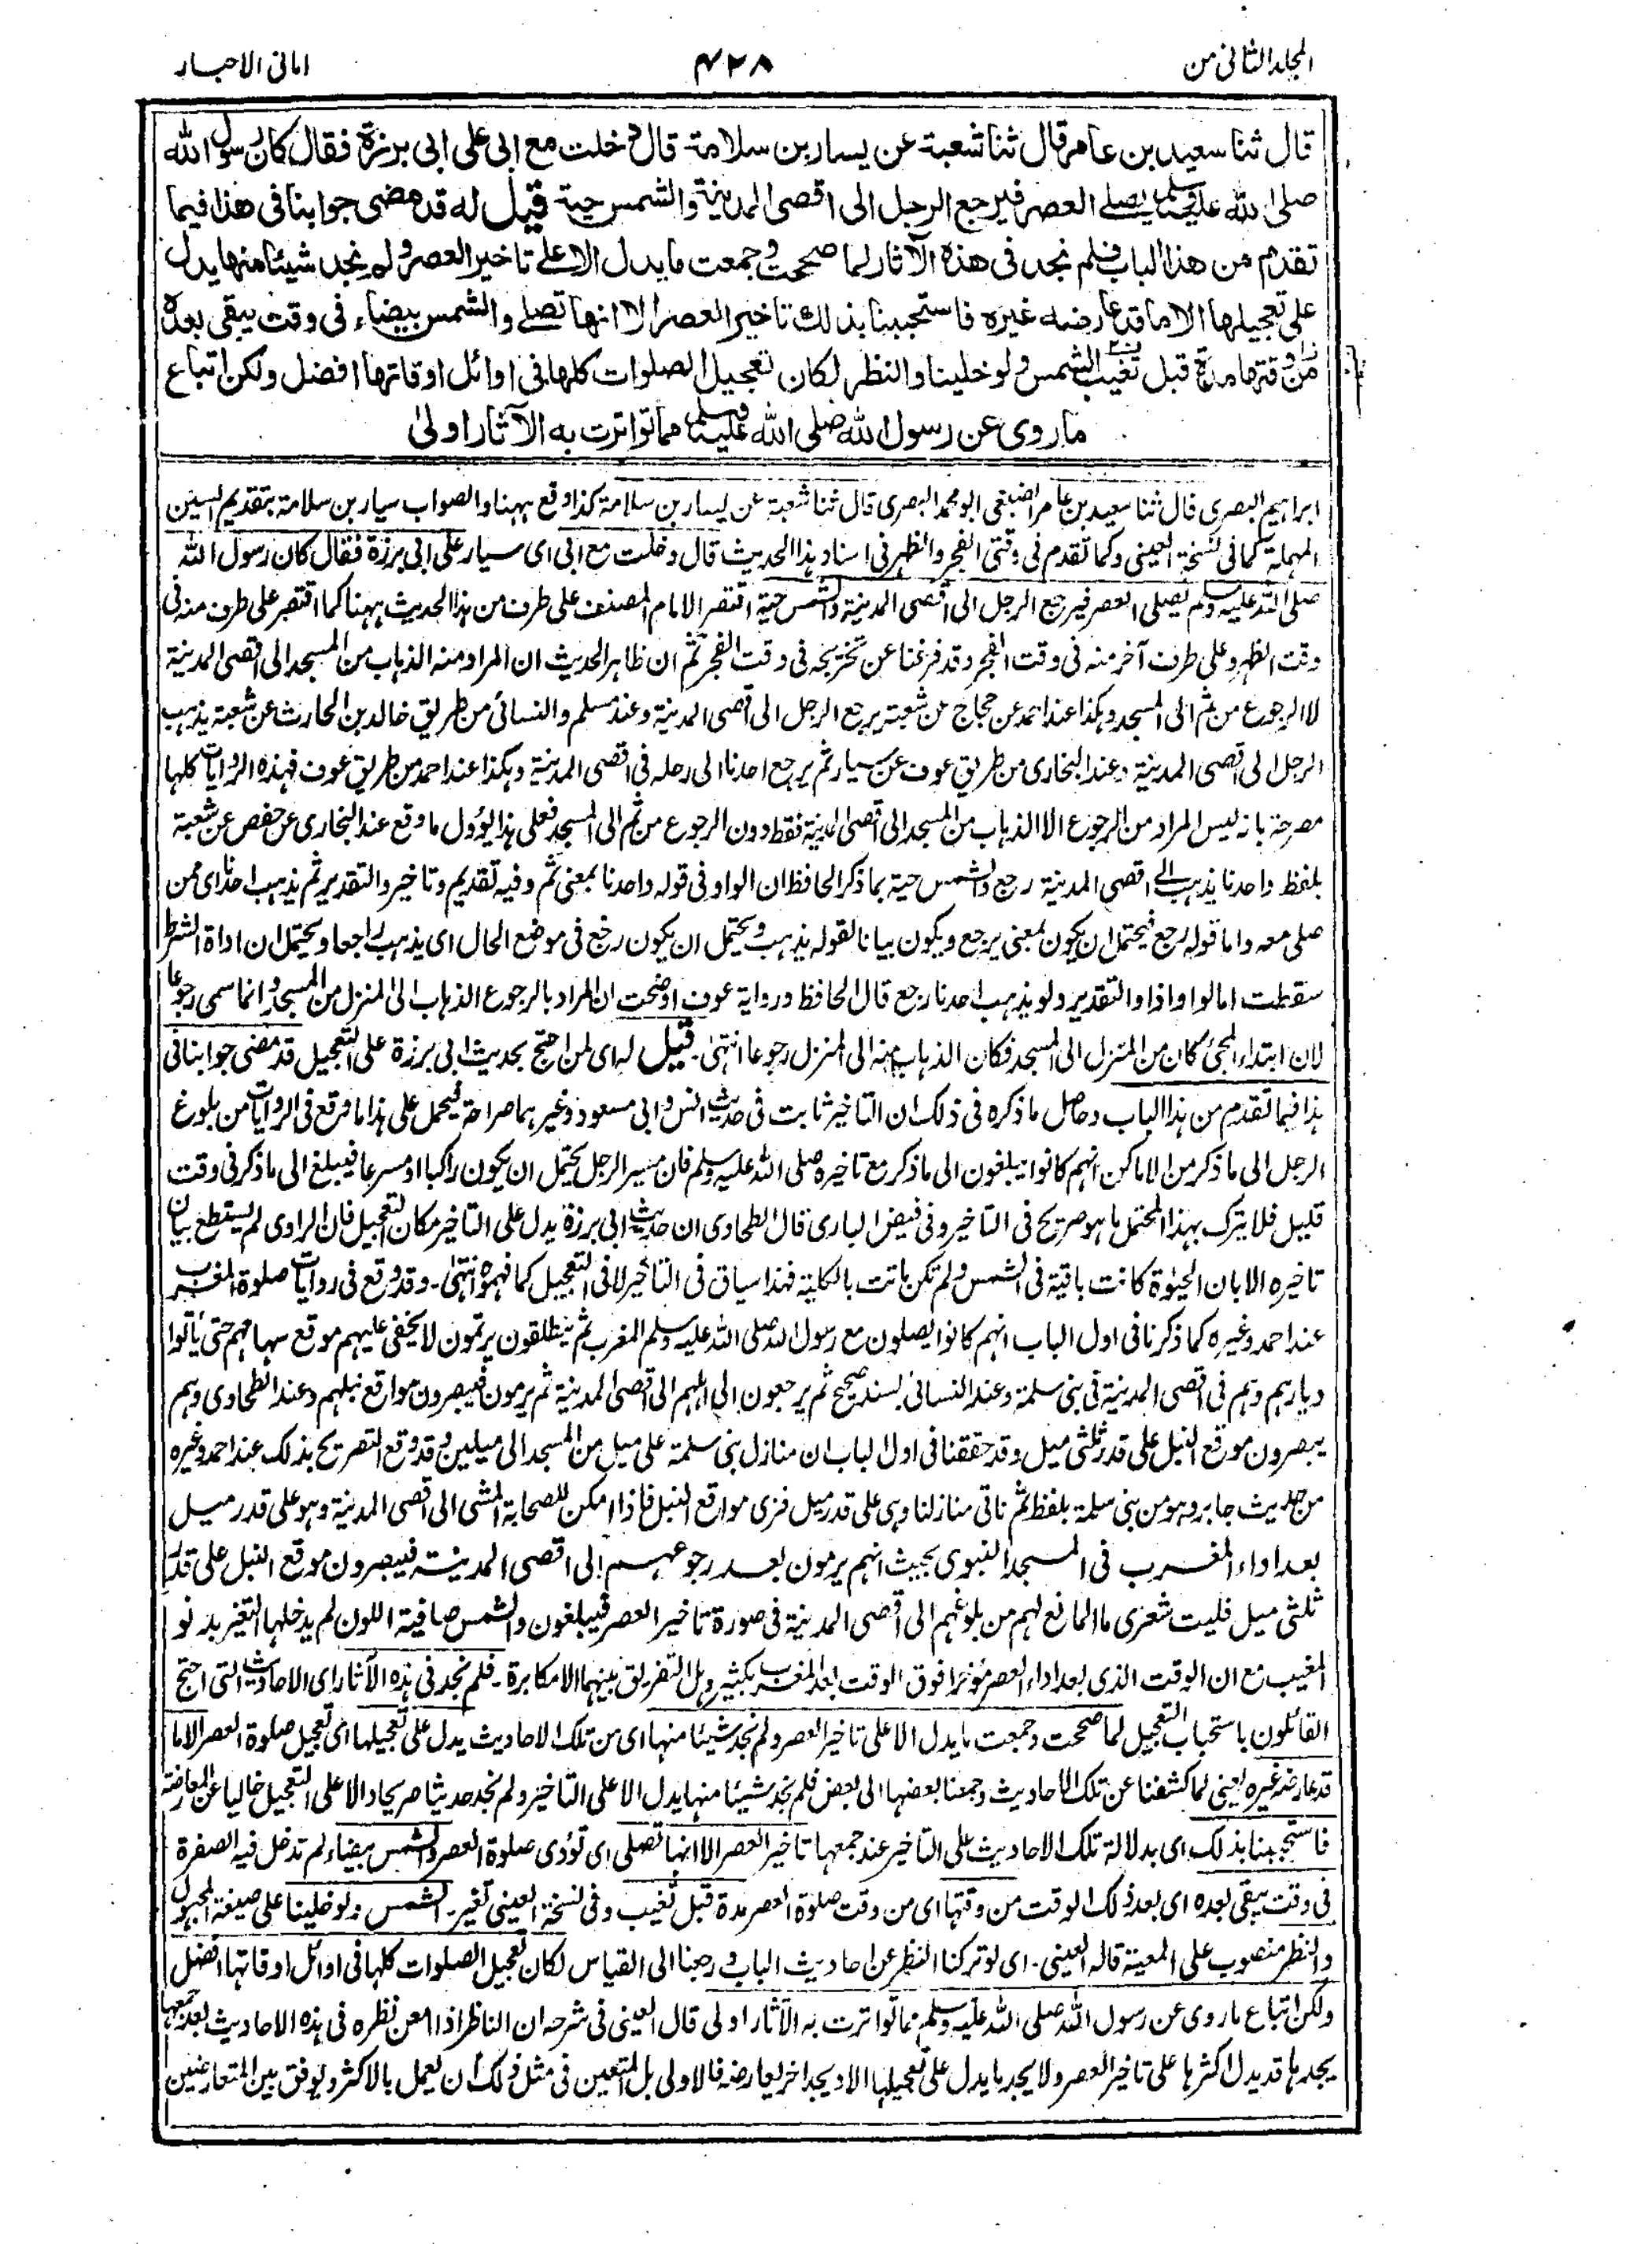 المجلد الثانی من
۴۲۸
امانی الاحبار
قال ثنا سعید بن عامر قال ثنا شعبة عن یسار بن سلامة قال دخلت مع ابی علی ابی برزة فقال کان رسول الله
صلی الله علیه وسلم یصلے العصر فیرجع الرجل الی اقصی المدینة والشمس حیة قیل له قد مضی جوابنا فی هذا فیما
تقدم من هذا الباب فلم نجد فی هذه الآثار لما صححت وجمعت ما یدل الا علے تاخیر العصر ولم نجد شیئا منها یدل
علی تعجیلها الا ما قد عارضه غیره فاستحببنا بذلك تاخیر العصر الا انها تصلے والشمس بیضاء فی وقت یبقی بعده
من وقتها مدة قبل تغیب الشمس ولو خلینا والنظر لکان تعجیل الصلوات کلها فی اوائل اوقاتها افضل ولکن اتباع
ما روی عن رسول الله صلی الله علیه وسلم مما تواترت به الآثار اولیٰ
ابراہیم البصری قال ثنا سعید بن عامر الضبعی ابو محمد البصری قال ثنا شعبة عن یسار بن سلامة کذا وقع ہہنا والصواب سیار بن سلامة بتقدیم السین
المہملة کما فی نسخة العینی وکما تقدم فی وقتی الفجر والظہر فی اسناد ہذا الحدیث قال دخلت مع ابی ای سیار علی ابی برزة فقال کان رسول الله
صلی اللہ علیہ وسلم یصلی العصر فیرجع الرجل الی اقصی المدینة والشمس حیة اقتصر الامام المصنف علی طرف من ہذا الحدیث ہہنا کما اقتصر علی طرف منہ فی
وقت الظہر وعلی طرف آخر منہ فی وقت الفجر وقد فرغنا عن تخریجہ فی وقت الفجر ثم ان ظاہر الحدیث ان المراد منہ الذہاب من المسجد الی اقصی المدینة
لا الرجوع من ثم الی المسجد وہکذا عند احمد عن حجاج عن شعبة یرجع الرجل الی اقصی المدینة وعند مسلم والنسائی من طریق خالد بن الحارث عن شعبة یذہب
الرجل الی اقصی المدینة وعند البخاری من طریق عوف عن سیار ثم یرجع احدنا الی رحلہ فی اقصی المدینة وہکذا عند احمد من طریق عوف فہذہ الروایات کلہا
مصرحة بانہ لیس المراد من الرجوع الا الذہاب من المسجد الی اقصی المدینة فقط دون الرجوع من ثم الی المسجد فعلی ہذا یؤول ما وقع عند البخاری عن حفص عن شعبة
بلفظ واحدنا یذہب الے اقصی المدینة رجع والشمس حیة بما ذکر الحافظ ان الواو فی قولہ واحدنا بمعنی ثم وفیہ تقدیم وتاخیر والتقدیر ثم یذہب احدنا ای ممن
صلی معہ واما قولہ رجع فیحتمل ان یکون بمعنی یرجع ویکون بیانا لقولہ یذہب ویحتمل ان یکون رجع فی موضع الحال ای یذہب راجعا ویحتمل ان اداة الشرط
سقطت اما لو او اذا والتقدیر ولو یذہب احدنا رجع قال الحافظ وروایة عوف اوضحت ان المراد بالرجوع الذہاب الی المنزل من المسجد وانما سمی رجوعا
لان ابتداء المجئ کان من المنزل الی المسجد فکان الذہاب منہ الی المنزل رجوعا انتہیٰ۔ قیل لہ ای لمن احتج بحدیث ابی برزة علی التعجیل قد مضی جوابنا فی
ہذا فیما تقدم من ہذا الباب وحاصل ما ذکرہ فی ذلک ان التاخیر ثابت فی حدیث انس وابی مسعود وغیرہما صراحة فیحمل علی ہذا ما وقع فی الروایات من بلوغ
الرجل الی ما ذکر من الاماکن انہم کانوا یبلغون الی ما ذکر مع تاخیرہ صلی اللہ علیہ وسلم فان مسیر الرجل یحتمل ان یکون راکبا او مسرعا فیبلغ الی ما ذکر فی وقت
قلیل فلا یترک بہذا المحتمل ما ہو صریح فی التاخیر وفی فیض الباری قال الطحاوی ان حدیث ابی برزة یدل علی التاخیر مکان التعجیل فان الراوی لم یستطع بیان
تاخیرہ الا بان الحیٰوة کانت باقیة فی الشمس ولم تکن ماتت بالکلیة فہذا سیاق فی التاخیر لا فی التعجیل کما فہموہ انتہیٰ۔ وقد وقع فی روایات صلوة المغرب
عند احمد وغیرہ کما ذکرنا فی اول الباب انہم کانوا یصلون مع رسول اللہ صلی اللہ علیہ وسلم المغرب ثم ینطلقون یرتمون لا یخفی علیہم موقع سہامہم حتی یأتوا
دیارہم وہم فی اقصی المدینة فی بنی سلمة وعند النسائی بسند صحیح ثم یرجعون الی اہلہم الی اقصی المدینة ثم یرمون فیبصرون مواقع نبلہم وعند الطحاوی وہم
یبصرون موقع النبل علی قدر ثلثی میل وقد حققنا فی اول الباب ان منازل بنی سلمة علی میل من المسجد الی میلین وقد وقع التصریح بذلک عند احمد وغیرہ
من حدیث جابر وہو من بنی سلمة بلفظ ثم ناتی منازلنا وہی علی قدر میل فنری مواقع النبل فاذا امکن للصحابة المشی الی اقصی المدینة وہو علی قدر میل
بعد اداء المغرب فی المسجد النبوی بحیث انہم یرمون بعد رجوعہم الی اقصی المدینة فیبصرون موقع النبل علی قدر
ثلثی میل فلیت شعری ما المانع لہم من بلوغہم الی اقصی المدینة فی صورة تاخیر العصر فیبلغون والشمس صافیة اللون لم یدخلہا التغیر بدنو
المغیب مع ان الوقت الذی بعد اداء العصر مؤخرا فوق الوقت بعد المغرب بکثیر وہل التفریق بینہما الا مکابرة۔ فلم نجد فی ہذہ الآثار ای الاحادیث التی احتج
القائلون باستحباب التعجیل لما صححت وجمعت ما یدل الا علی تاخیر العصر ولم نجد شیئا منہا ای من تلک الاحادیث یدل علی تعجیلہا ای تعجیل صلوة العصر الا ما
قد عارضہ غیرہ یعنی لما کشفنا عن تلک الاحادیث وجمعنا بعضہا الی بعض فلم نجد شیئا منہا یدل الا علی التاخیر ولم نجد حدیثا صریحا دالا علی التعجیل خالیا عن المعارضة
فاستحببنا بذلک ای بدلالة تلک الاحادیث علی التاخیر عند جمعہا تاخیر العصر الا انہا تصلی ای تؤدی صلوة العصر والشمس بیضاء لم تدخل فیہ الصفرة
فی وقت یبقی بعدہ ای بعد ذلک الوقت من وقتہا ای من وقت صلوة العصر مدة قبل تغیب وفی نسخة العینی تغیر۔ الشمس ولو خلینا علی صیغة المجہول
والنظر منصوب علی المعیة قالہ العینی۔ ای لو ترکنا النظر عن احادیث الباب ورجعنا الی القیاس لکان تعجیل الصلوات کلہا فی اوائل اوقاتہا افضل
ولکن اتباع ما روی عن رسول اللہ صلی اللہ علیہ وسلم مما تواترت بہ الآثار اولی قال العینی فی شرحہ ان الناظر اذا امعن نظرہ فی ہذہ الاحادیث بعد جمعہا
یجدہا قد یدل اکثرہا علی تاخیر العصر ولا یجد ما یدل علی تعجیلہا الا ویجد اخر یعارضہ فالاولی بل المتعین فی مثل ذلک ان یعمل بالاکثر ویوفق بین المتعارضین